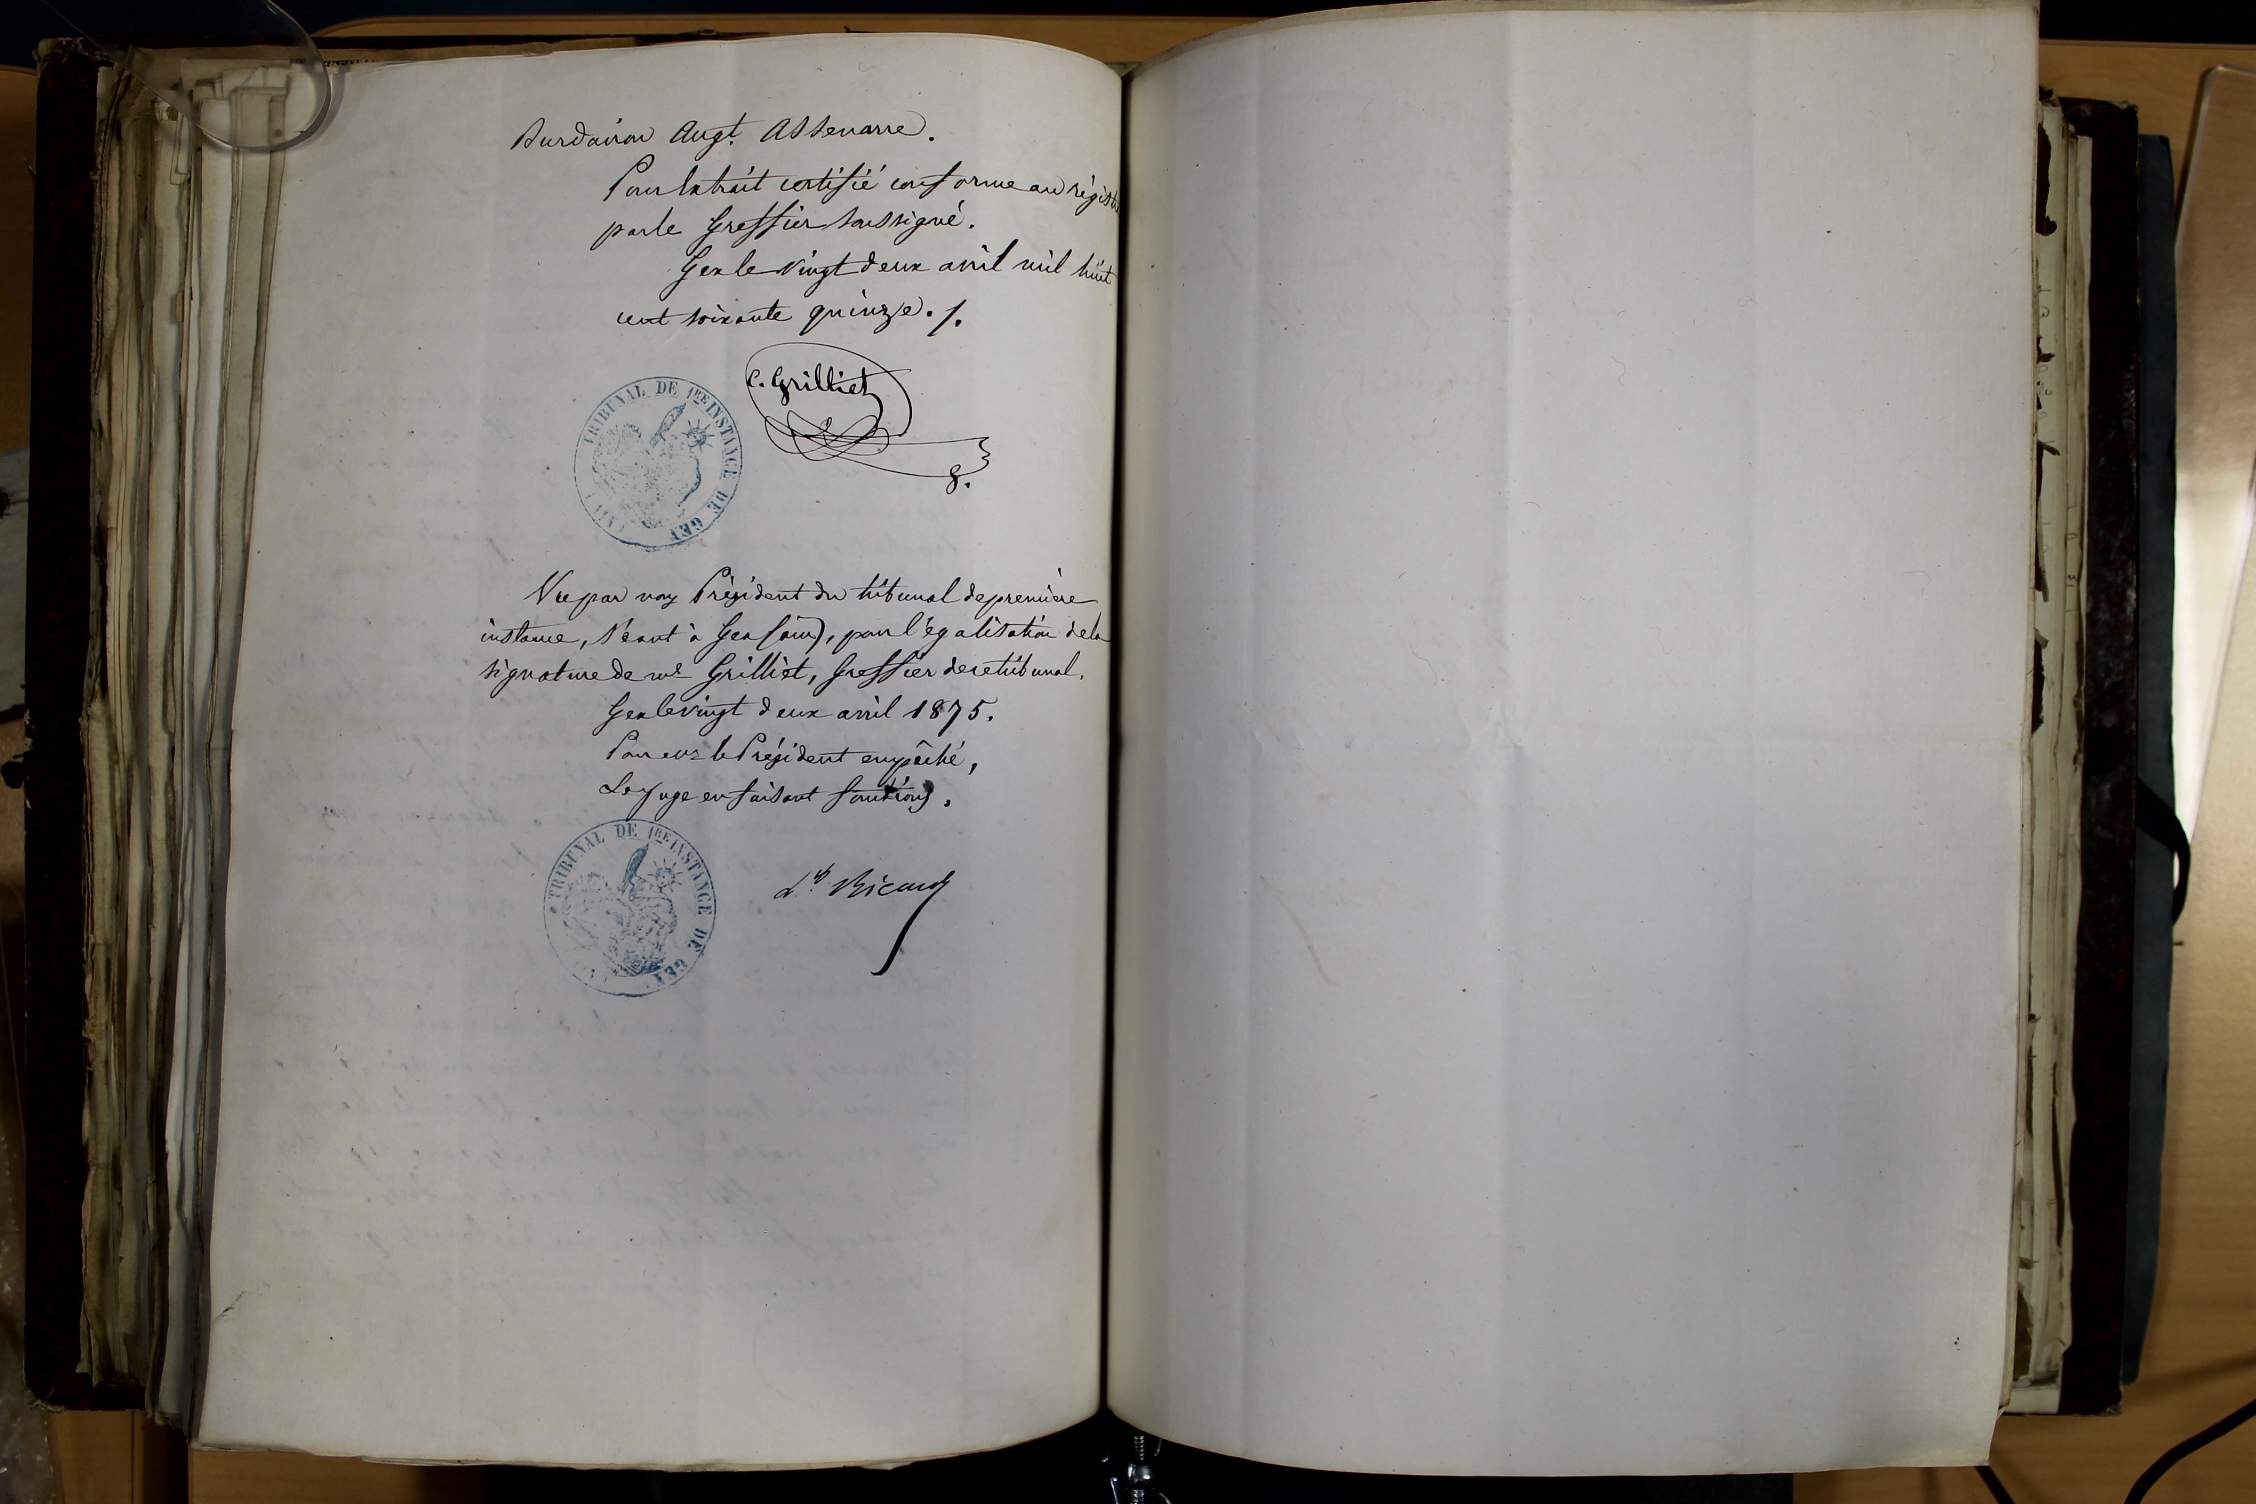 Burdairon Augt. Assenarre.
Pour Extrait certifié conforme au régistre
par le Greffier soussigné.
Gex le vingt deux avril mil huit
cent soixante quinze ./.
C. Grilliet
g.
TRIBUNAL DE 1RE INSTANCE DE GEX
Vu par nous Président du tribunal de première
instance, séant à Gex (ain), pour légalisation de la
signature de mr Grilliet, Greffier de ce tribunal.
Gex le vingt deux avril 1875.
Pour mr le Président empêché,
Le juge en faisant fonctions,
TRIBUNAL DE 1RE INSTANCE DE GEX
Ricard